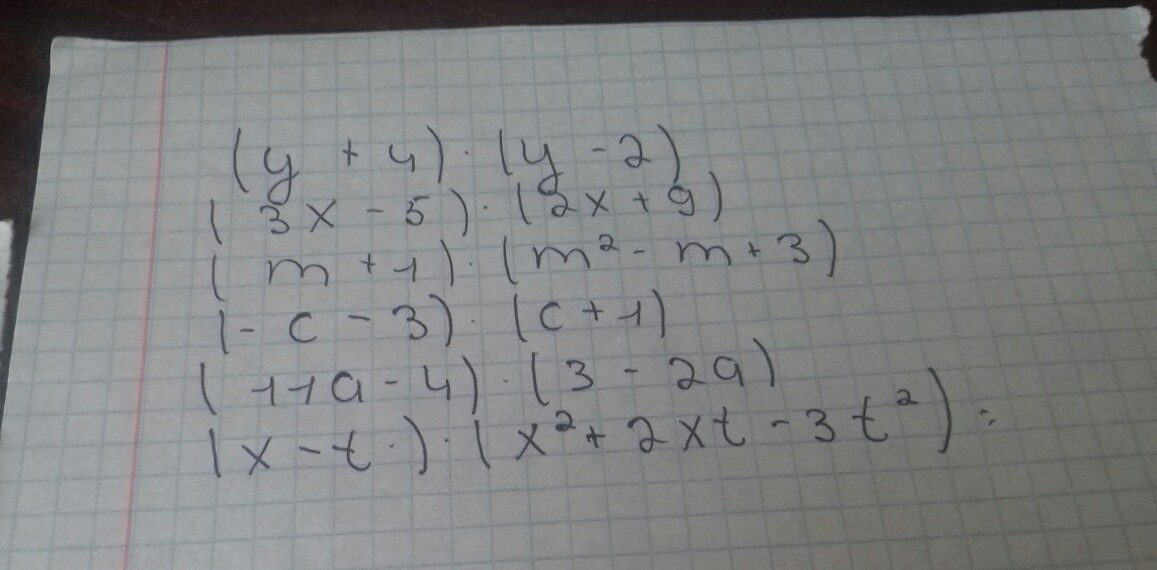 (y + 4) · (y - 2)
(3x - 5) · (2x + 9)
(m + 1) · (m² - m + 3)
(- c - 3) · (c + 1)
(11a - 4) · (3 - 2a)
(x - t ·) · (x² + 2xt - 3t²) =